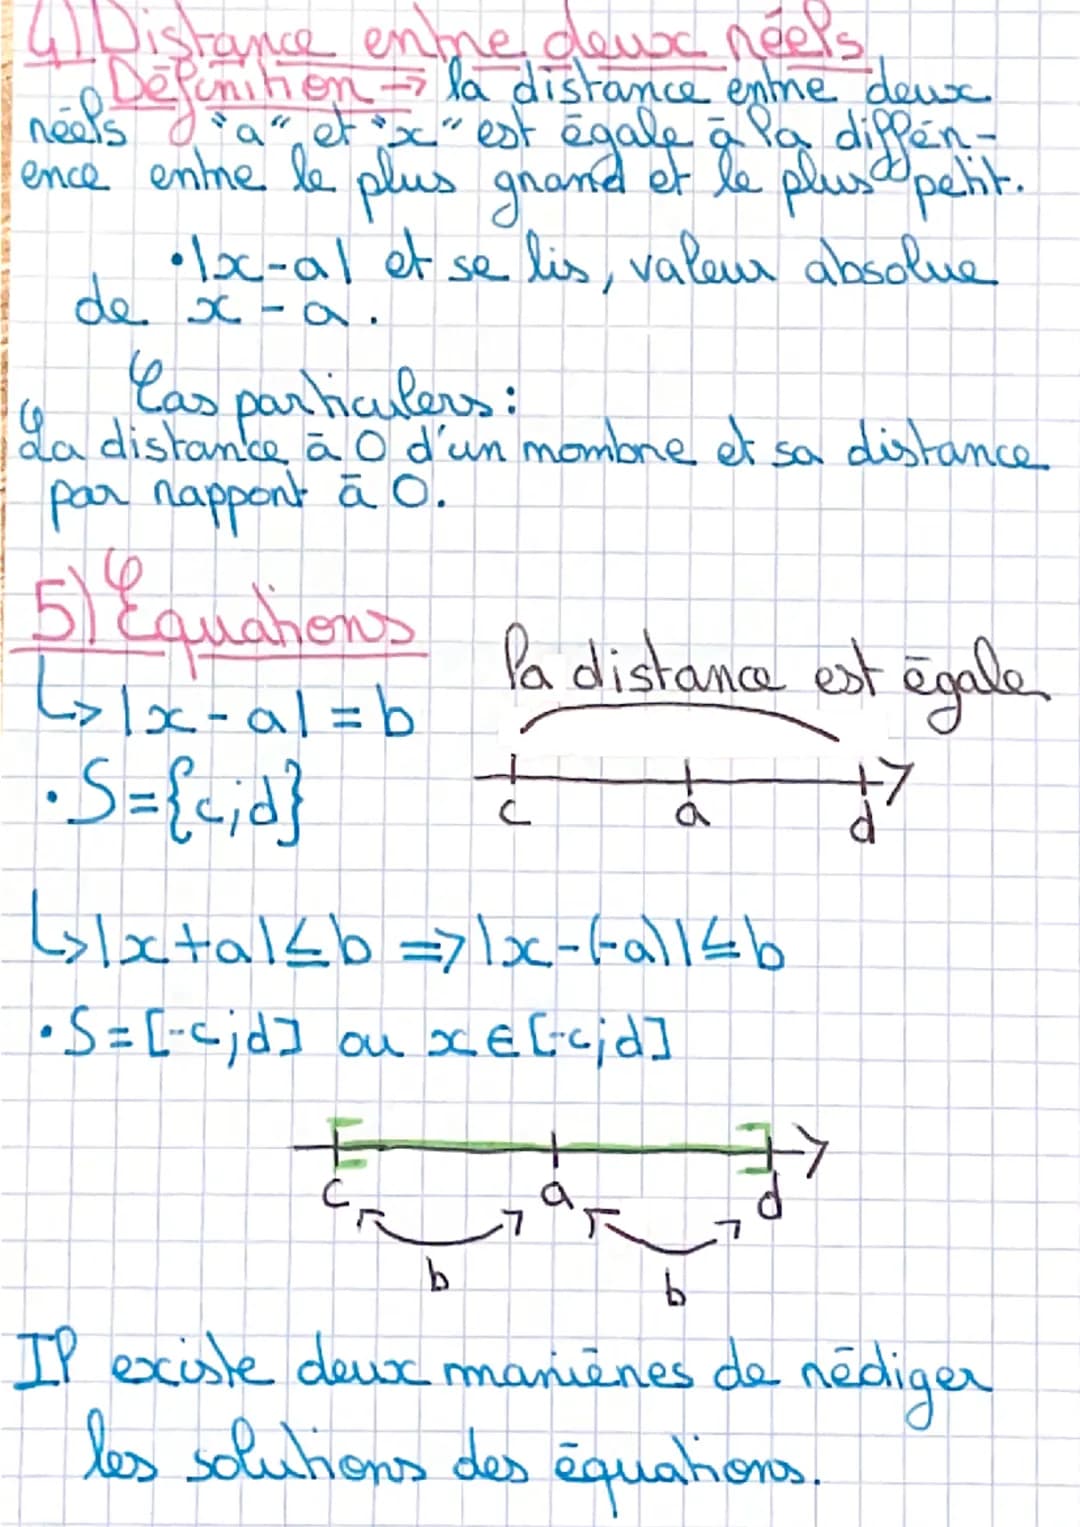 4) Distance entre deux réels
Définition → la distance entre deux
réels "a" et "x" est égale à la différ-
ence entre le plus grand et le plus petit.
• |x-a| et se lis, valeur absolue
de x - a.
Cas particulers :
La distance à 0 d'un nombre et sa distance
par rapport à 0.
5) Equations
la distance est égale
↳ |x-a| = b
• S={c;d}
c a d
↳ |x+a| ≤ b => |x-(-a)| ≤ b
• S = [-c;d] ou x ∈ [-c;d]
c a d
b b
Il existe deux manières de rédiger
les solutions des équations.